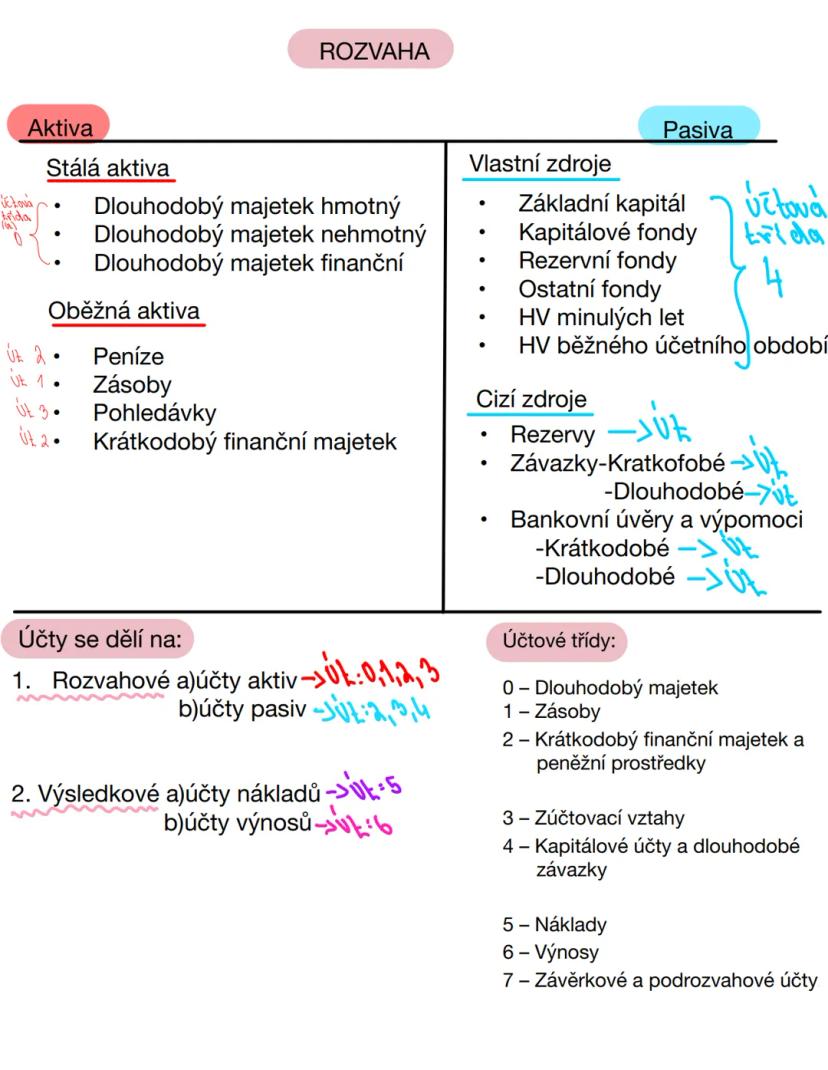 ROZVAHA
Aktiva
Pasiva
Stálá aktiva
účtová
třída
0
• Dlouhodobý majetek hmotný
• Dlouhodobý majetek nehmotný
• Dlouhodobý majetek finanční
Oběžná aktiva
Út 2 • Peníze
Út 1 • Zásoby
Út 3 • Pohledávky
Út 2 • Krátkodobý finanční majetek
Vlastní zdroje
• Základní kapitál
• Kapitálové fondy
• Rezervní fondy
• Ostatní fondy
• HV minulých let
• HV běžného účetního období
účtová
třída
4
Cizí zdroje
• Rezervy → Út
• Závazky-Kratkofobé → Út
-Dlouhodobé → Út
• Bankovní úvěry a výpomoci
-Krátkodobé → Út
-Dlouhodobé → Út
Účty se dělí na:
1. Rozvahové a)účty aktiv → Út: 0,1,2,3
b)účty pasiv → Út: 2,3,4
2. Výsledkové a)účty nákladů → Út: 5
b)účty výnosů → Út: 6
Účtové třídy:
0 – Dlouhodobý majetek
1 – Zásoby
2 – Krátkodobý finanční majetek a
peněžní prostředky
3 – Zúčtovací vztahy
4 – Kapitálové účty a dlouhodobé
závazky
5 – Náklady
6 – Výnosy
7 – Závěrkové a podrozvahové účty